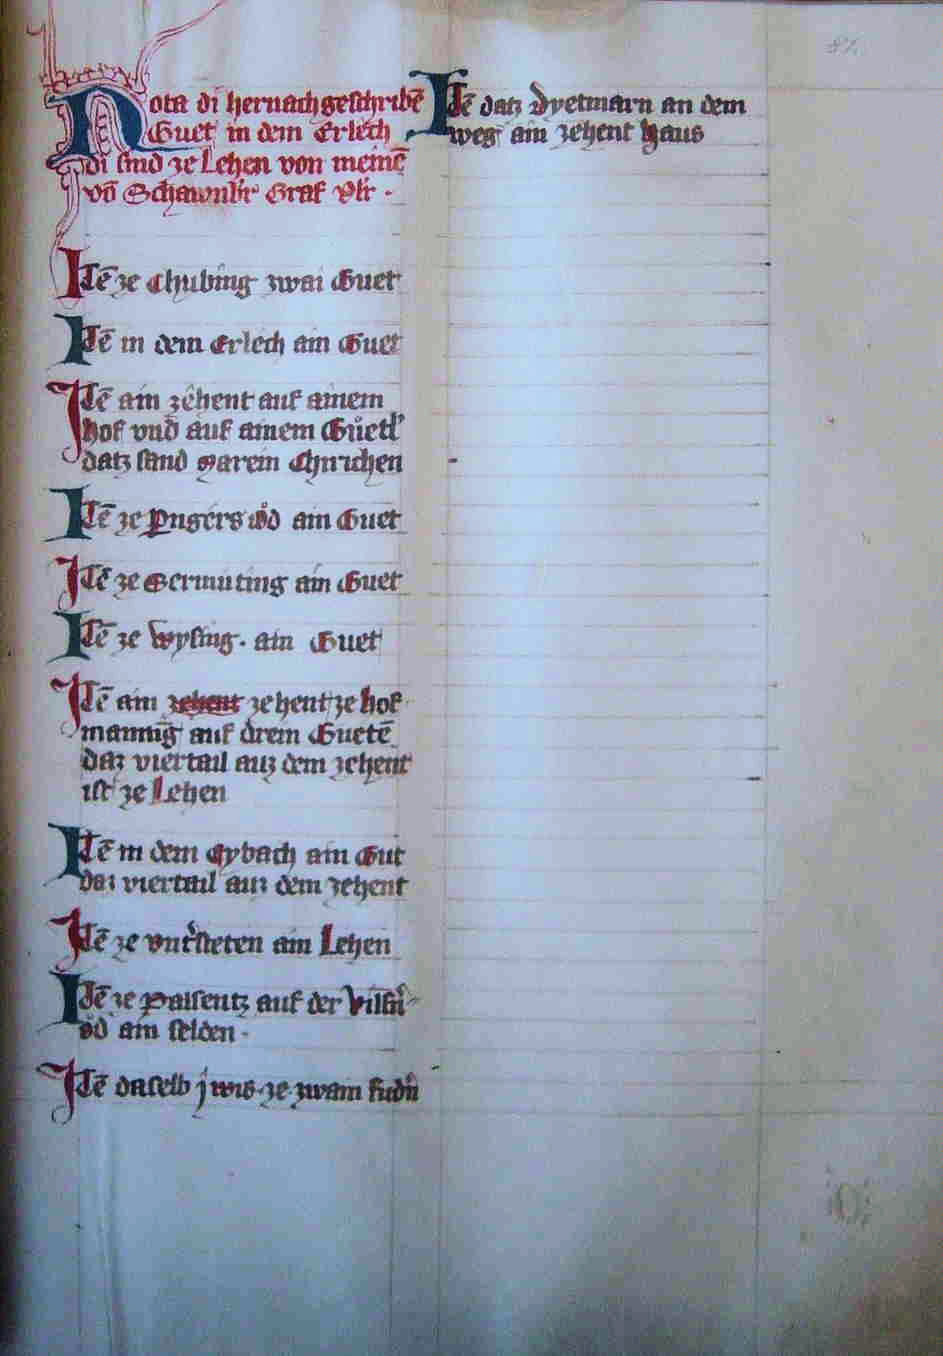 Nota di hernach geschribē
Guet in dem Erlech
di sind ze Lehen von meinē
vō Schawnb̄r Graf Vlr̄ ·
Itē ze Chubing zwai Guet
Itē in dem Erlech ain Guet
Itē ain zehent auf ainem
hof vnd auf ainem Guetl
datz sand Marein Chirichen
Itē ze öd ain Guet
Itē ze Germuting ain Guet
Itē ze Wysing · ain Guet
Itē ain zehent zehent ze hof
manning auf drein Guetē
daz viertail auz dem zehent
ist ze Lehen
Itē in dem Eybach ain Gut
daz viertail auz dem zehent
Itē ze vnt̄steten ain Lehen
Itē ze Palsentz auf der
öd ain selden ·
Itē daselb j wis · ze · zwain fudn̄
Itē datz Dyetmarn an dem
weg ain zehent Haus